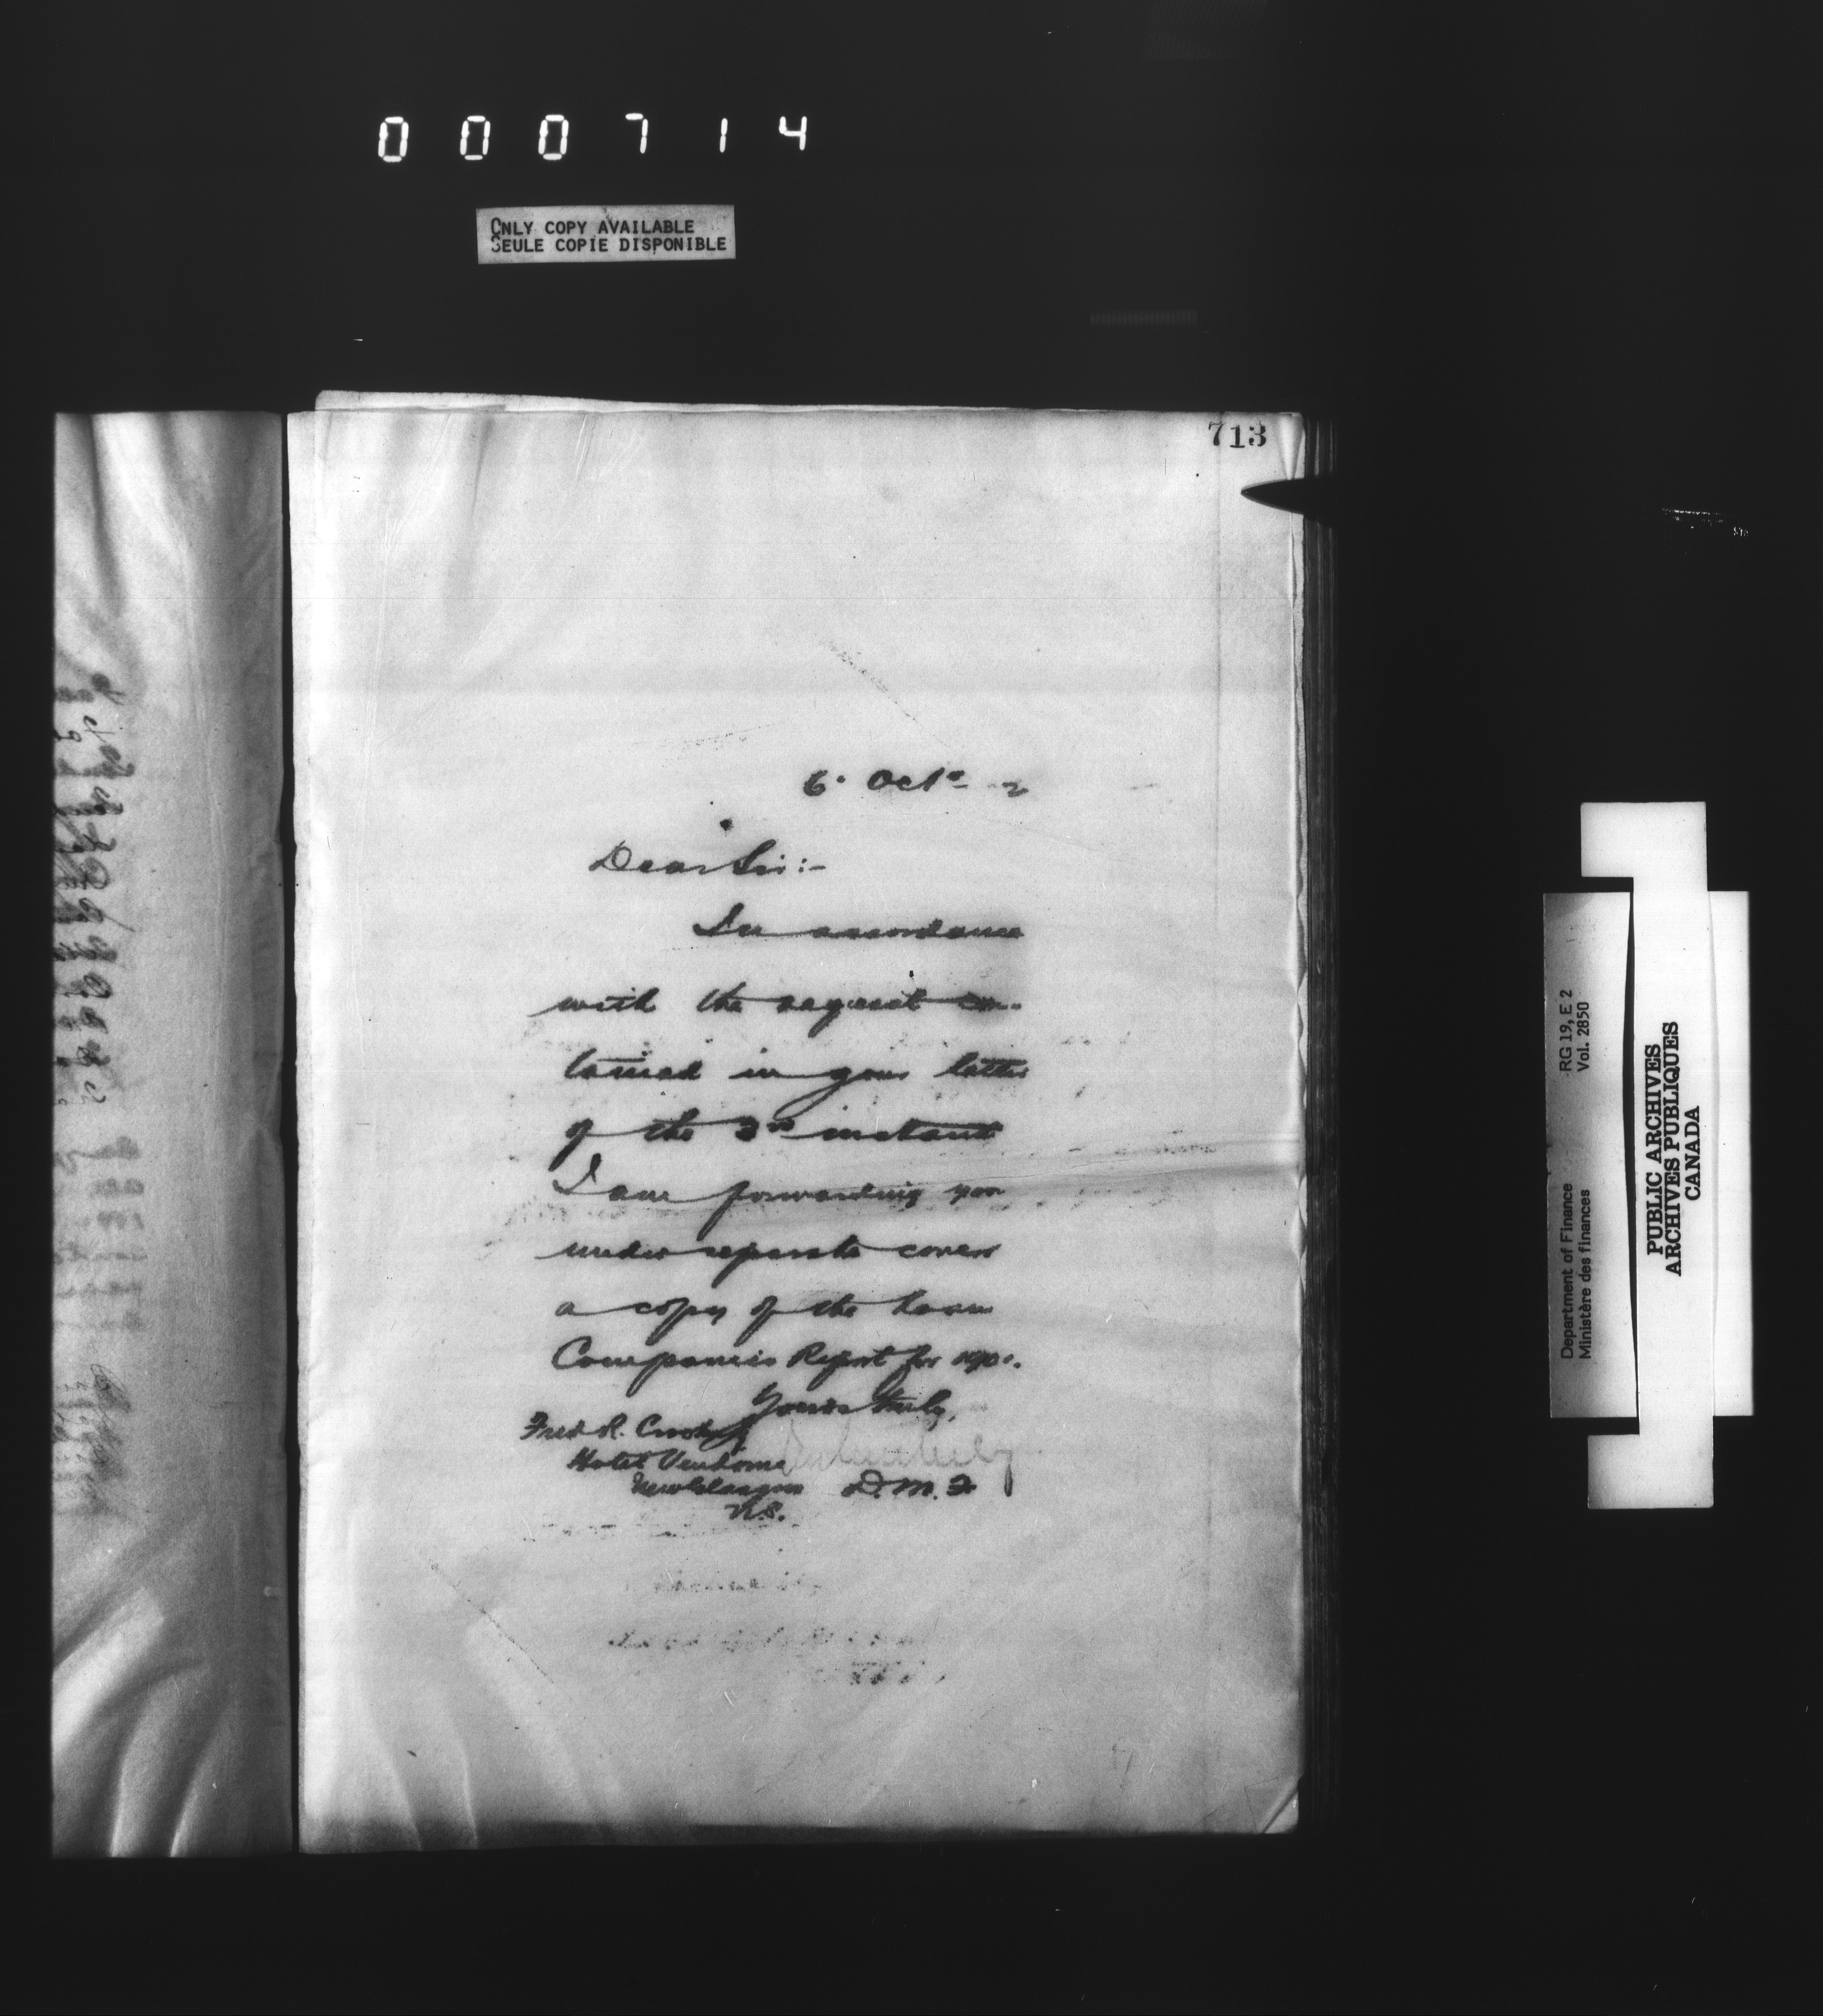 000714
ONLY COPY AVAILABLE
SEULE COPIE DISPONIBLE
713
6. Oct. 2
Dear Sir:-
In accordance
with the request con-
tained in your letter
of the 3rd instant
I am forwarding you
under separate cover
a copy of the Loan
Companies Report for 1901.
Yours truly,
Fred R.
Hotel Vendome
New Glasgow
N.S.
D.M.F
Department of Finance RG 19, E 2
Ministère des finances Vol. 2850
PUBLIC ARCHIVES
ARCHIVES PUBLIQUES
CANADA